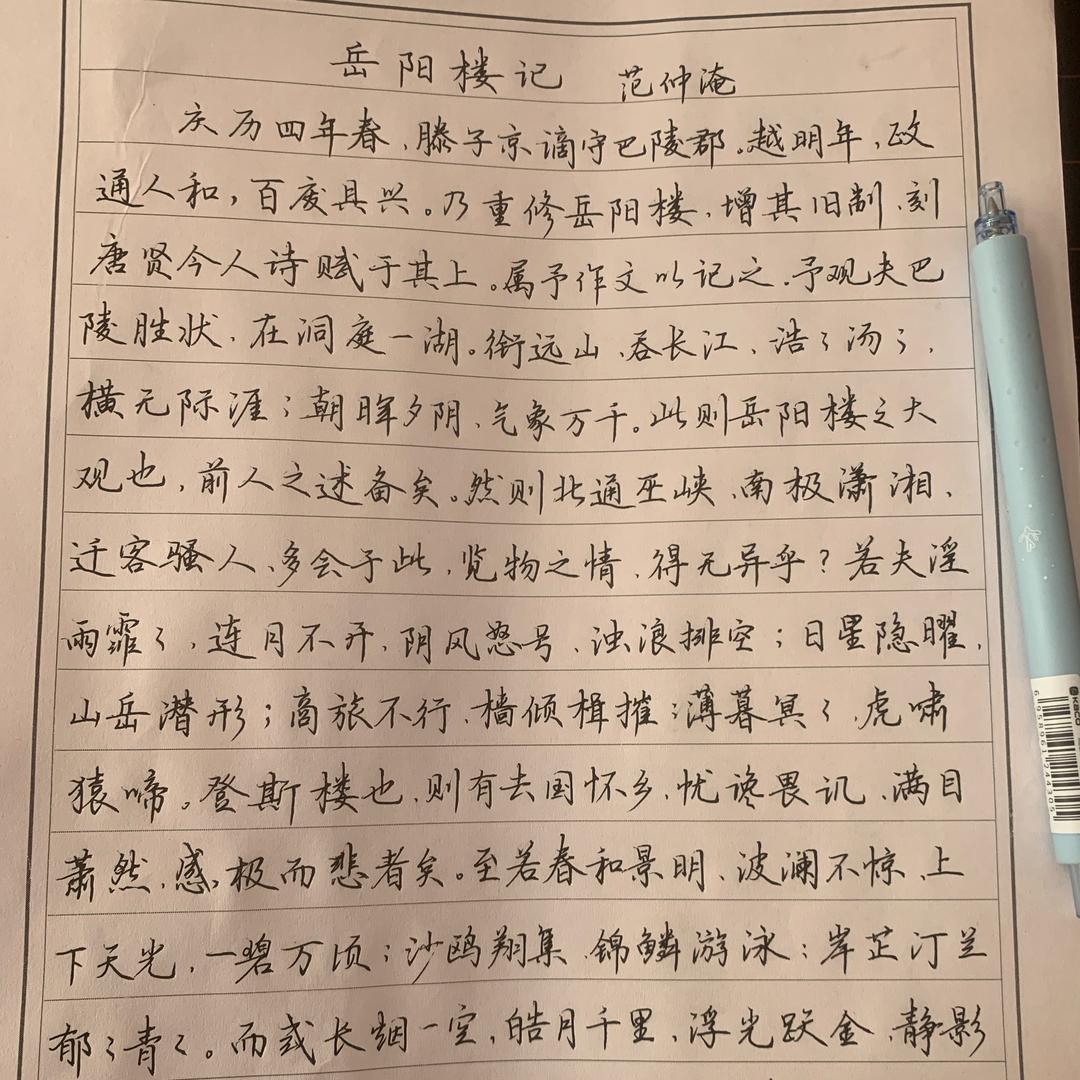 岳阳楼记 范仲淹
庆历四年春,滕子京谪守巴陵郡。越明年,政
通人和,百废具兴。乃重修岳阳楼,增其旧制,刻
唐贤今人诗赋于其上。属予作文以记之。予观夫巴
陵胜状,在洞庭一湖。衔远山,吞长江,浩々汤々,
横无际涯;朝晖夕阴,气象万千。此则岳阳楼之大
观也,前人之述备矣。然则北通巫峡,南极潇湘,
迁客骚人,多会于此,览物之情,得无异乎?若夫淫
雨霏々,连月不开,阴风怒号,浊浪排空;日星隐曜,
山岳潜形;商旅不行,樯倾楫摧;薄暮冥々,虎啸
猿啼。登斯楼也,则有去国怀乡,忧谗畏讥,满目
萧然,感极而悲者矣。至若春和景明,波澜不惊,上
下天光,一碧万顷;沙鸥翔集,锦鳞游泳;岸芷汀兰
郁々青々。而或长烟一空,皓月千里,浮光跃金,静影
KACO
6958961244305